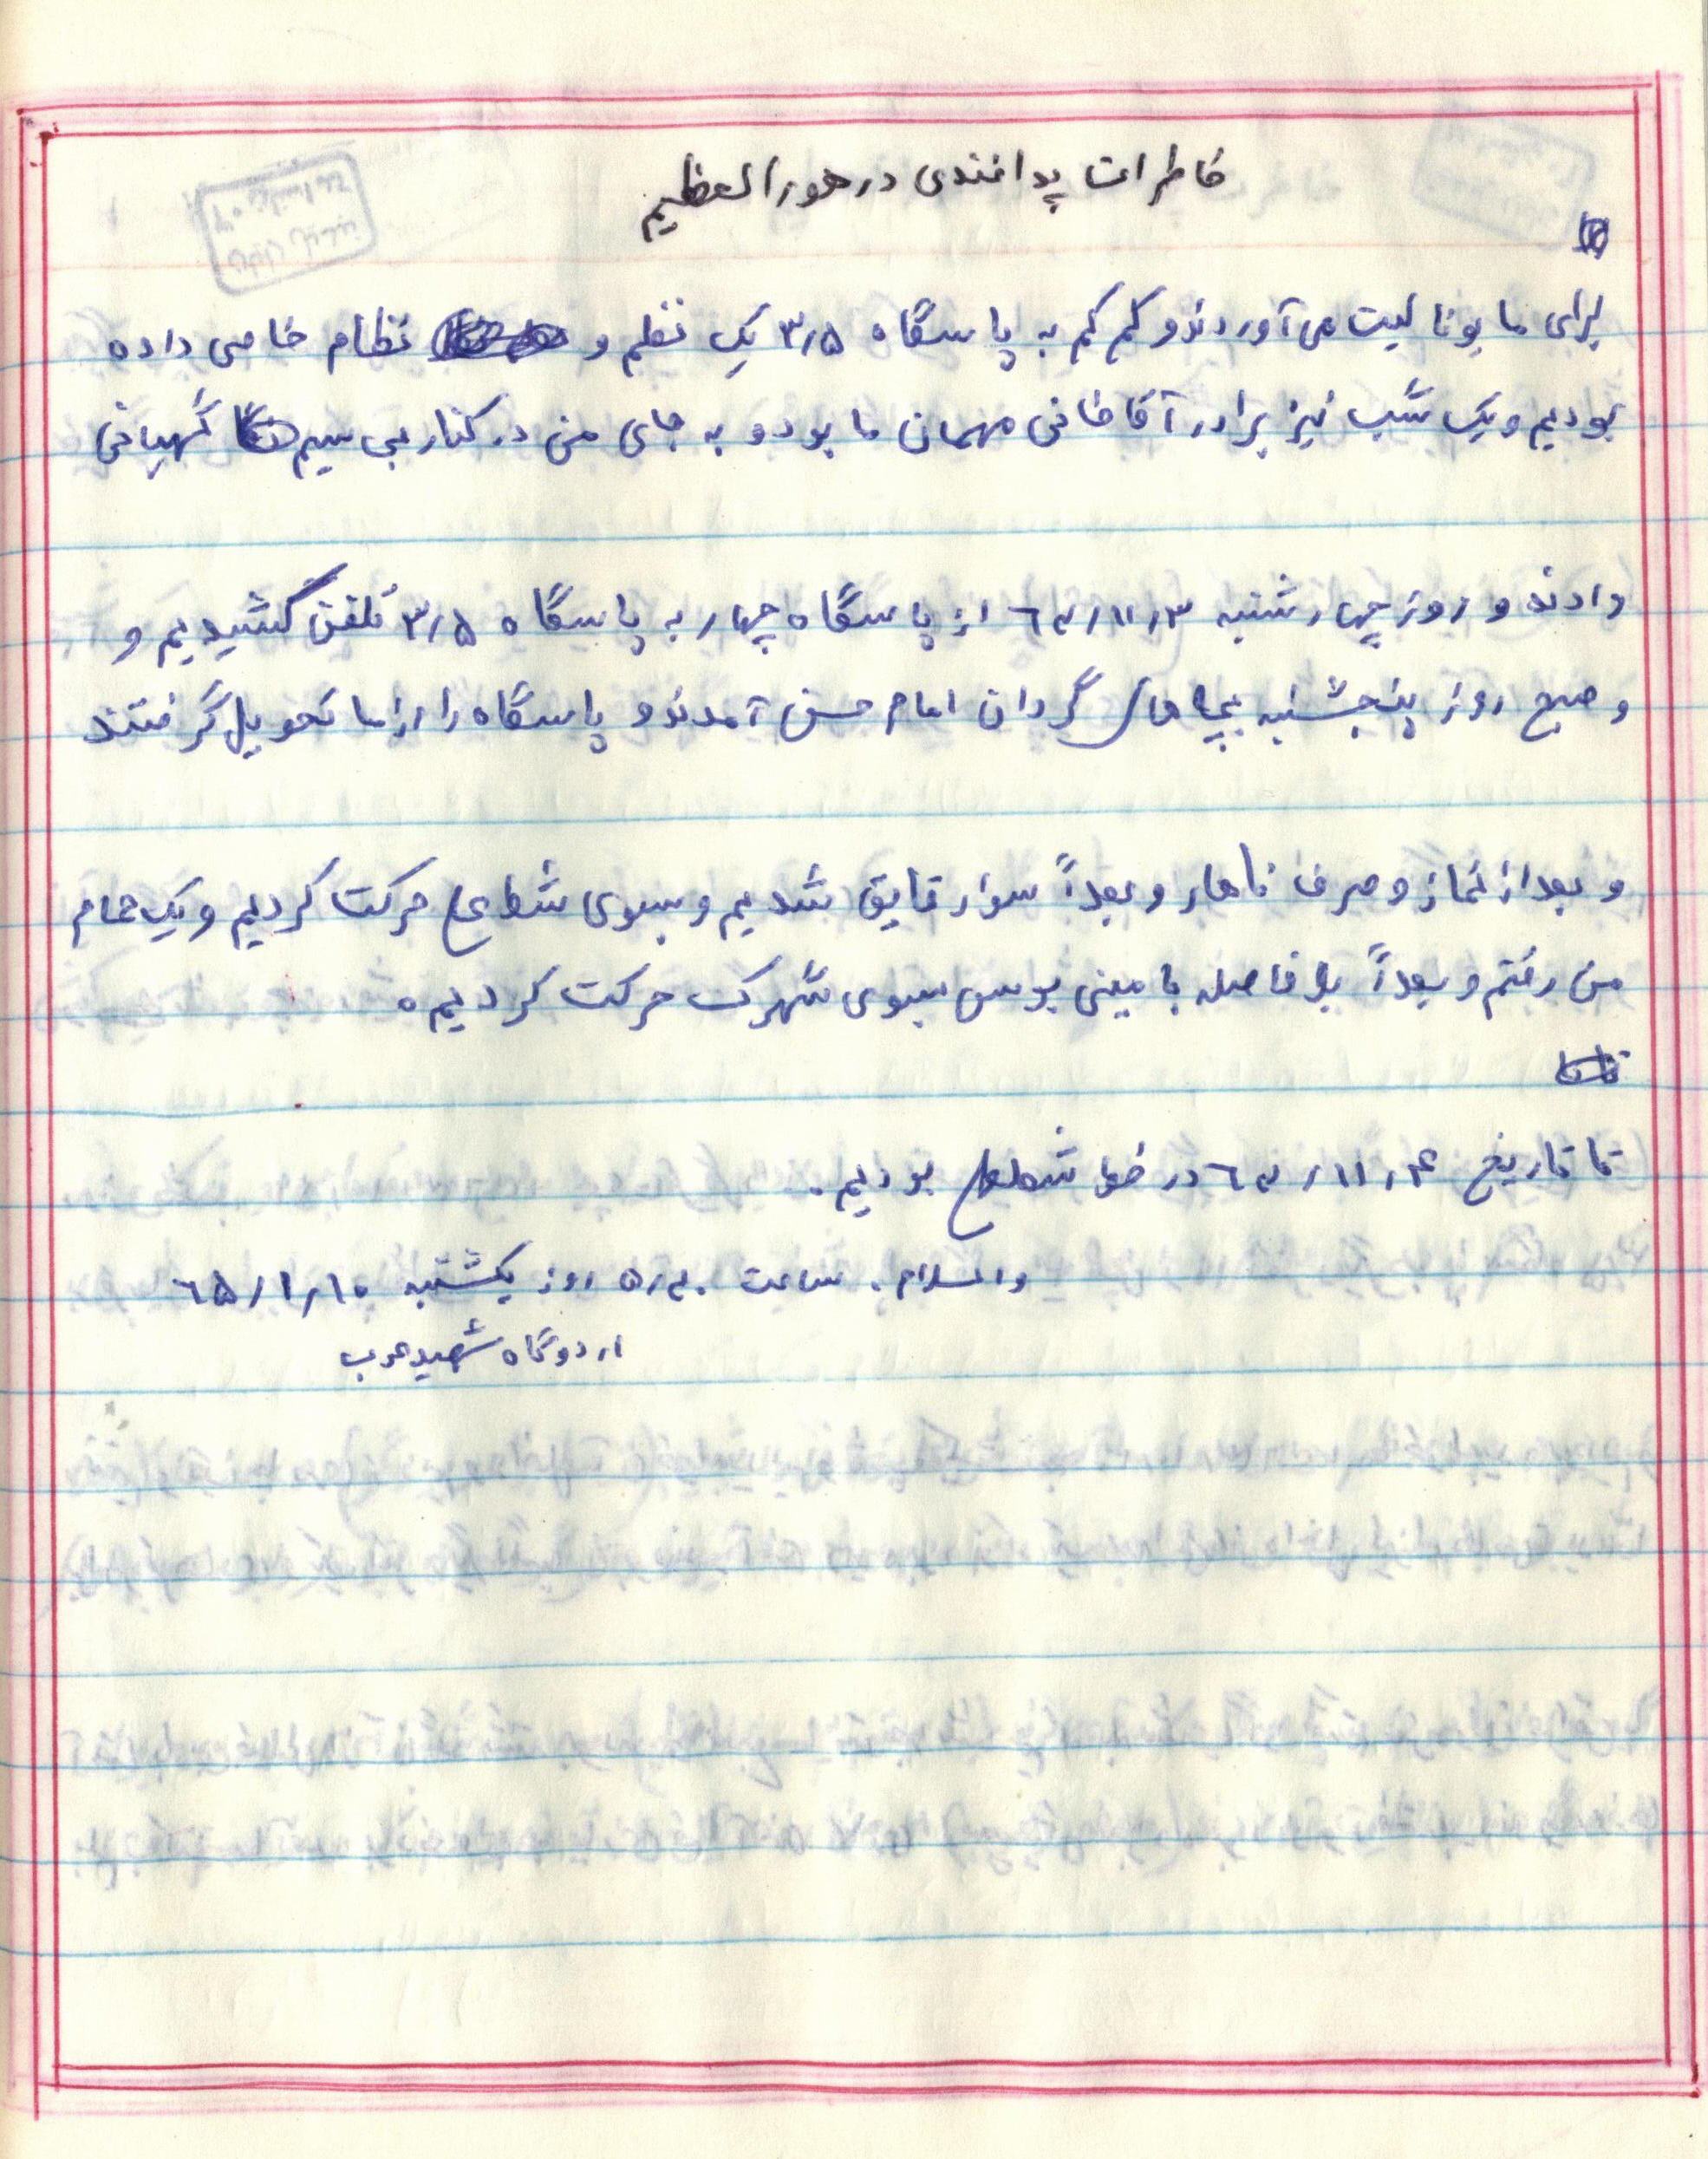 خاطرات پدافندی در هورالعظیم
برای ما یونالیت می‌آوردند و کم کم به پاسگاه ۳/۵ یک نظم و نظام خاصی داده
بودیم و یک شب نیز برادر آقاخانی مهمان ما بود و به جای من در کنار بی سیم نگهبانی
دادند و روز چهارشنبه از پاسگاه چهار به پاسگاه ۳/۵ تلفن کشیدیم و
و صبح روز پنجشنبه بچه های گردان امام حسن آمدند و پاسگاه را از ما تحویل گرفتند
و بعد از نماز و صرف ناهار و بعداً سوار قایق شدیم و بسوی شط علی حرکت کردیم و یک حمام
من رفتم و بعداً بلافاصله با مینی بوس بسوی شهرک حرکت کردیم.
تا تاریخ در خط شط علی بودیم.
والسلام. ساعت ۵/۳۰ روز یکشنبه ۶۵/۱/۱۰
اردوگاه شهید عرب